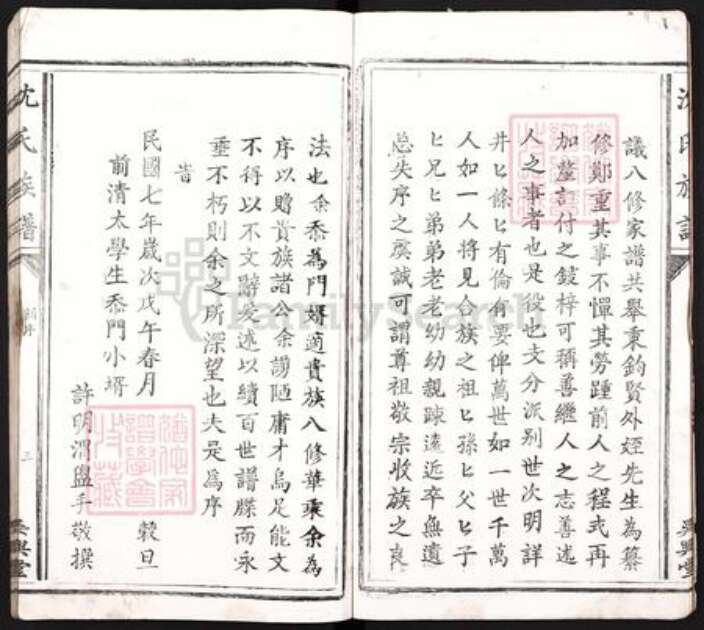 議八修家譜共舉秉鈞賢外姪先生為纂
修鄭重其事不憚其勞踵前人之程式再
加釐訂付之鋟梓可稱善繼人之志善述
人之事者也是役也支分派別世次明詳
井匕條匕有倫有要俾萬世如一世千萬
人如一人將見合族之祖匕孫匕父匕子
匕兄匕弟弟老老幼幼親踈遠近卒無遺
忘失序之虞誠可謂尊祖敬宗收族之良
法也余忝為門婿適貴族八修華乘余為
序以贈貴族諸公余謭陋庸才烏足能文
不得以不文辭爰述以續百世譜牒而永
垂不朽則余之所深望也夫是為序
旹
民國七年歲次戊午春月 穀旦
前清太學生忝門小壻
許明渭盥手敬撰
沈氏族譜
新序
三
吳興堂
FamilySearch